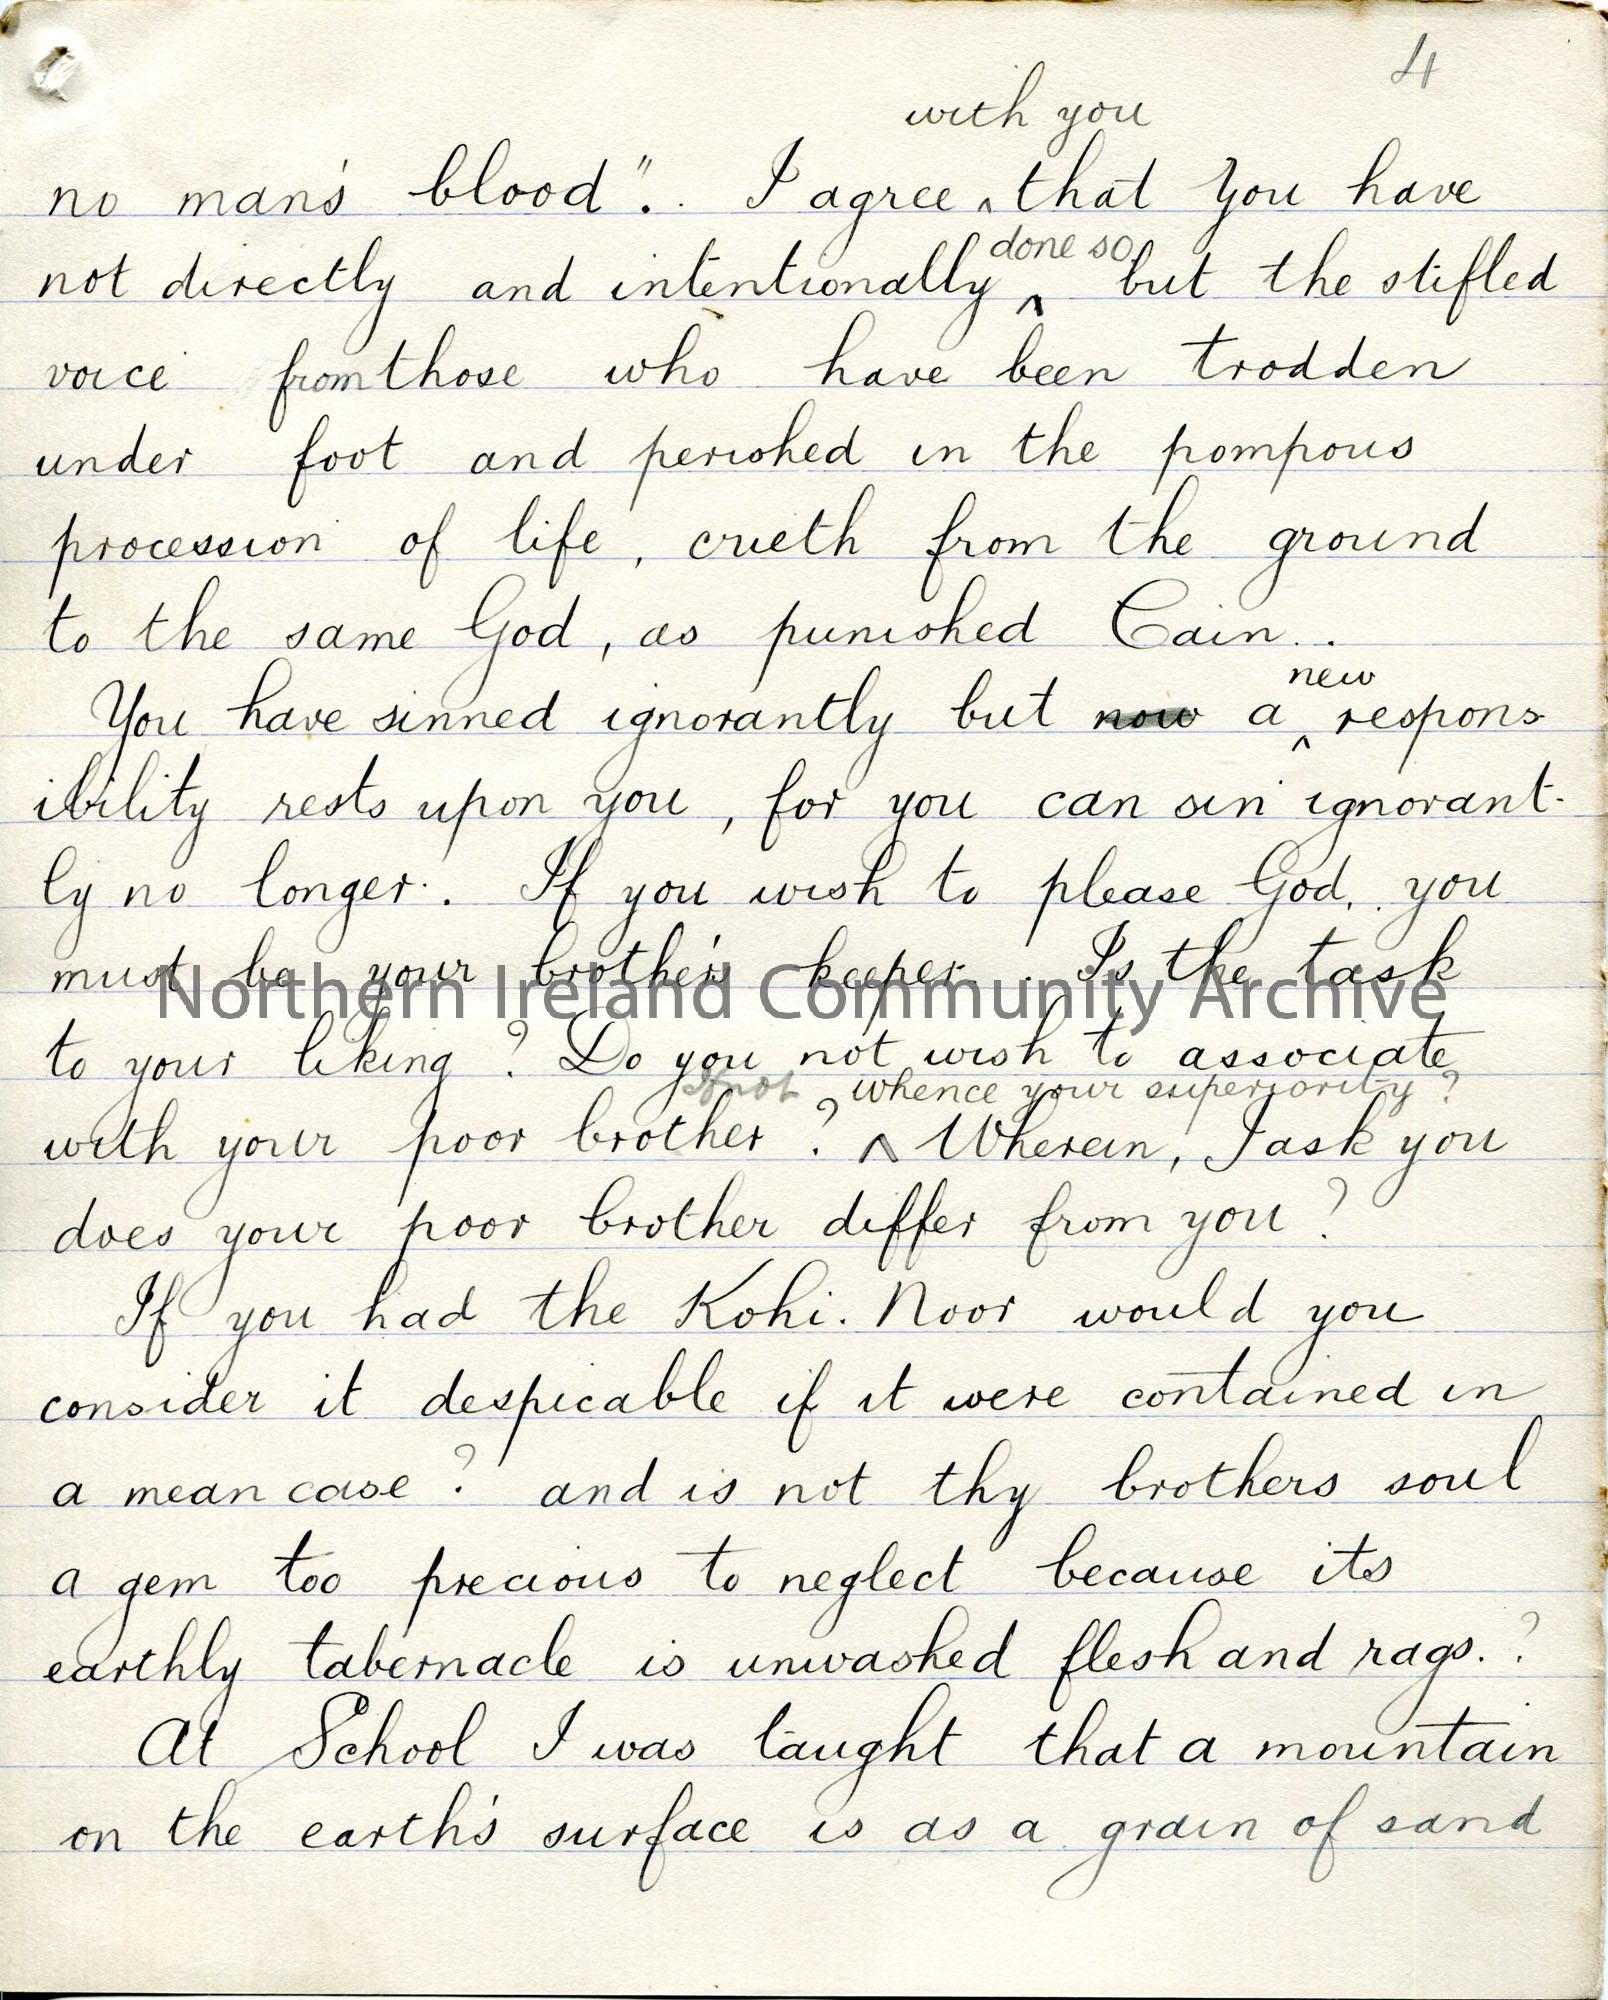 4
with you
no man's blood". I agree ^ that you have
done so
not directly and intentionally ^ but the stifled
voice from those who have been trodden
under foot and perished in the pompous
procession of life, crieth from the ground
to the same God, as punished Cain..
new
You have sinned ignorantly but now a ^ respons
ibility rests upon you, for you can sin ignorant-
ly no longer. If you wish to please God, you
must be your brother's keeper. Is the task
Northern Ireland Community Archive
to your liking? Do you not wish to associate
If not, whence your superiority?
with your poor brother? ^ Wherein, I ask you
does your poor brother differ from you?
If you had the Kohi. Noor would you
consider it despicable if it were contained in
a mean case? and is not thy brothers soul
a gem too precious to neglect because its
earthly tabernacle is unwashed flesh and rags.?
At School I was taught that a mountain
on the earth's surface is as a grain of sand